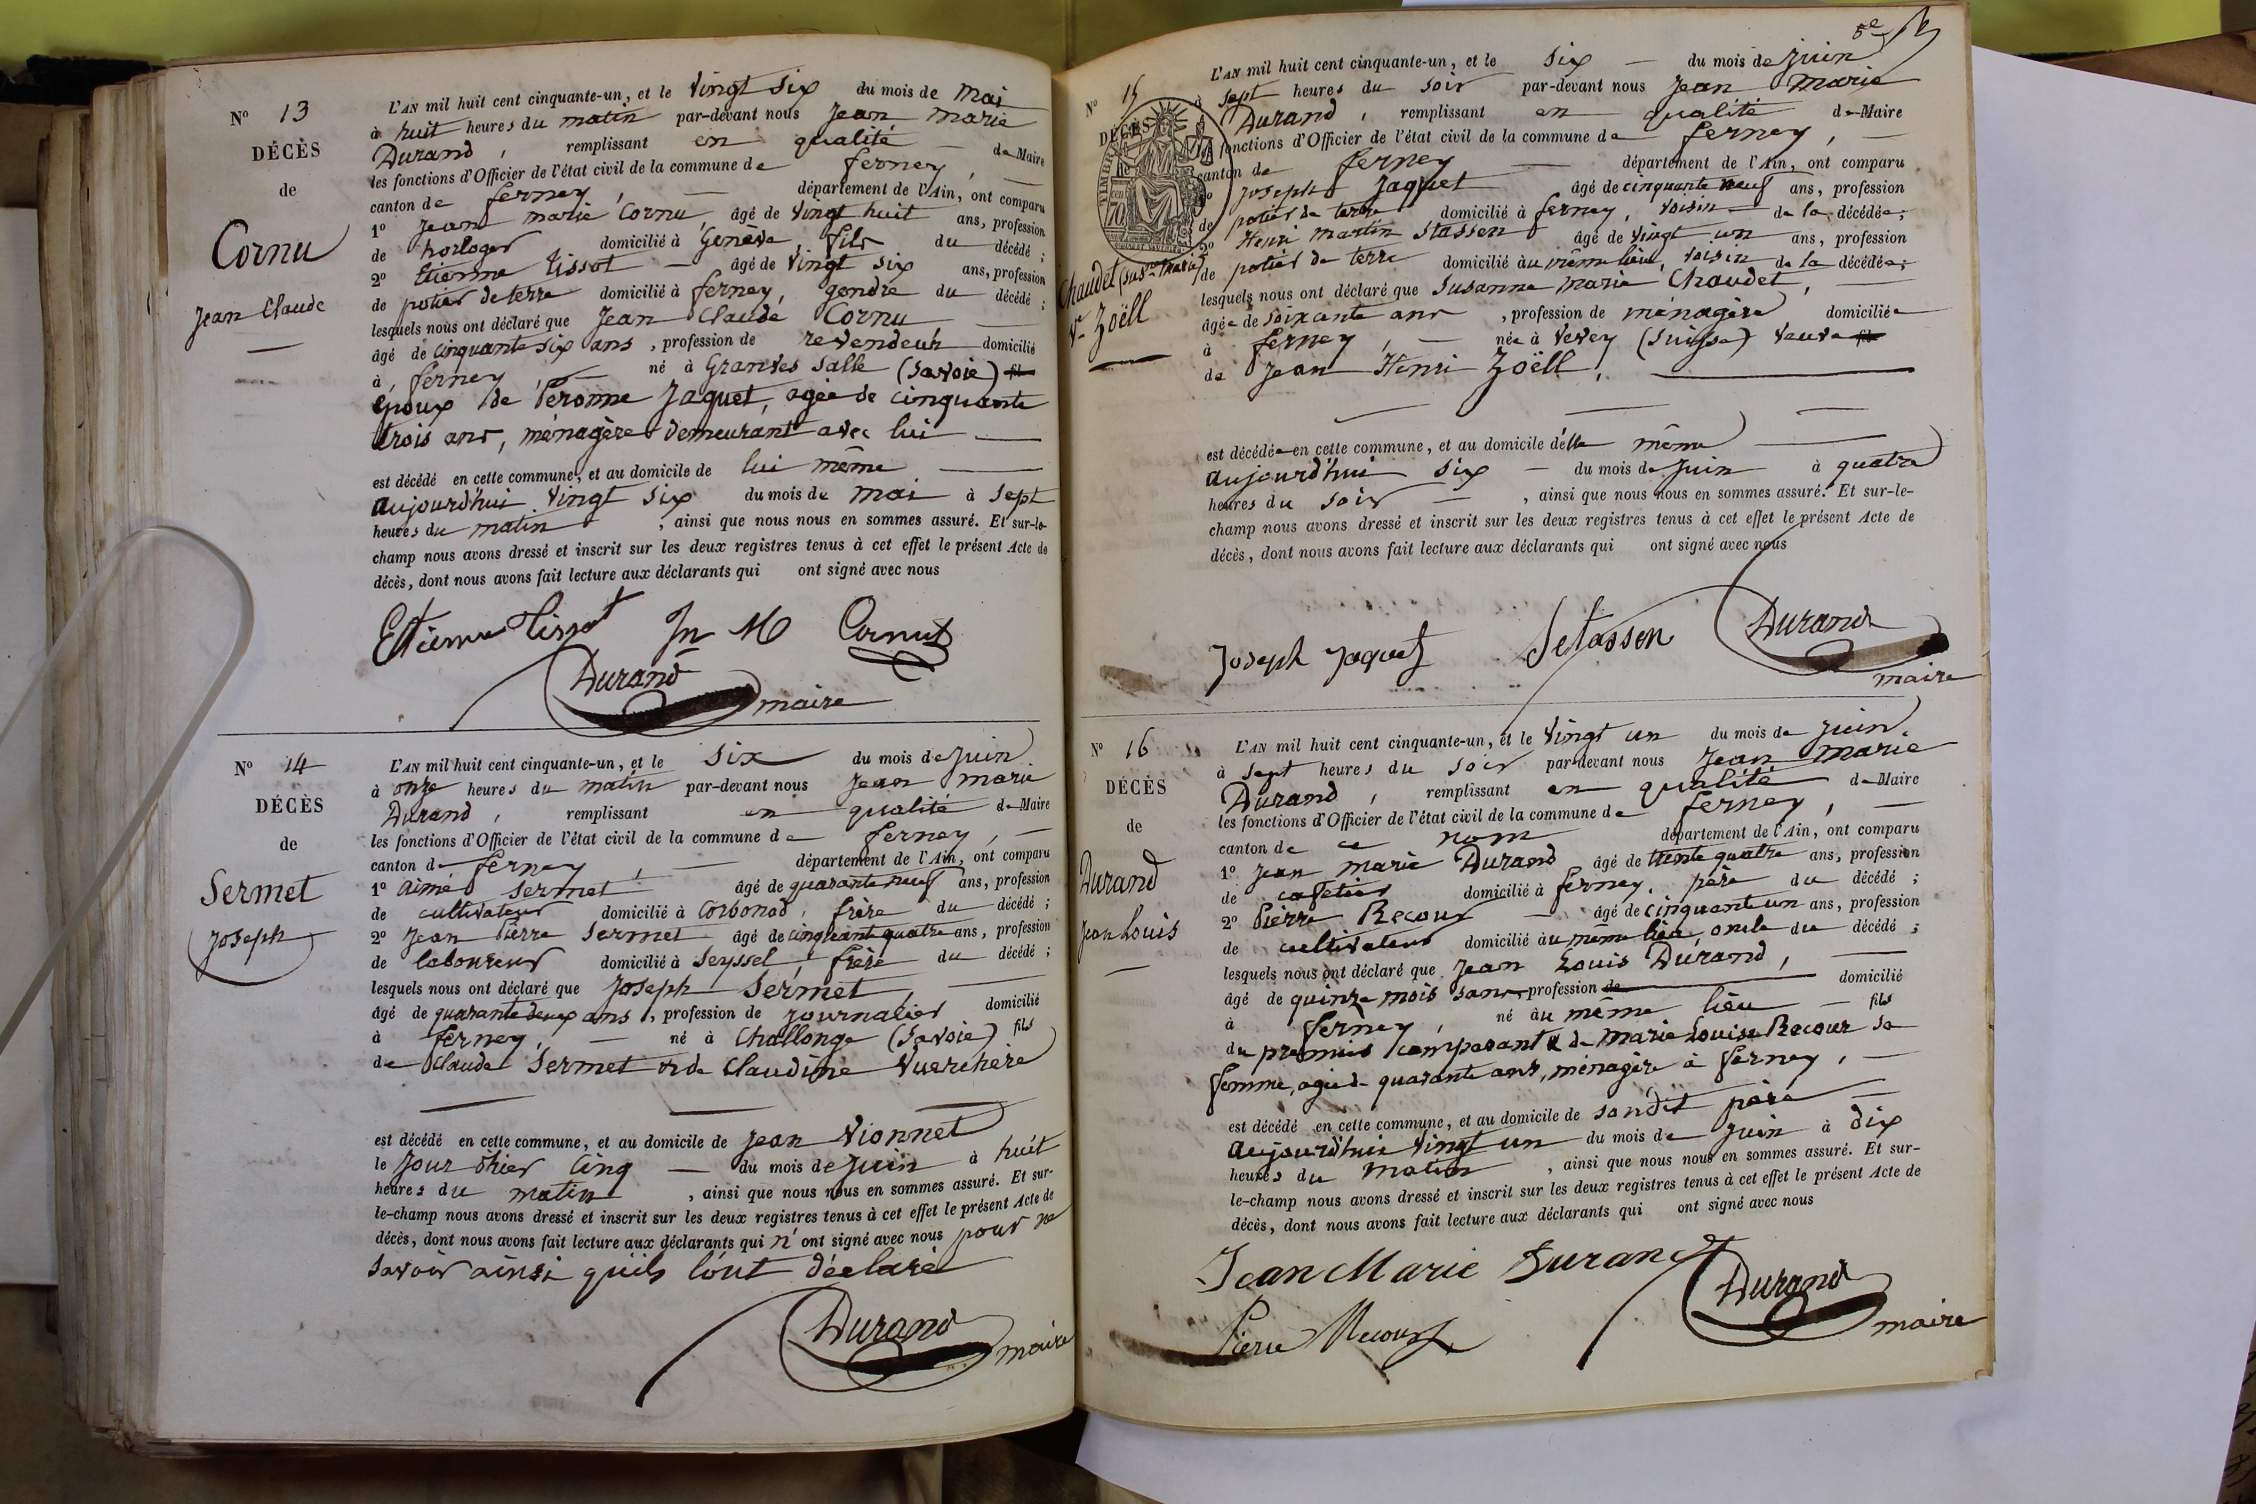 N° 13
DÉCÈS
de
Cornu
Jean Claude
L'AN mil huit cent cinquante-un, et le Vingt six du mois de mai
à huit heures du matin par-devant nous Jean marie
Durand, remplissant en qualité de Maire
les fonctions d'Officier de l'état civil de la commune de ferney,
canton de ferney, département de l'Ain, ont comparu
1° Jean marie Cornu âgé de Vingt huit ans, profession
de horloger domicilié à Genève, fils du décédé;
2° Etienne Tissot âgé de Vingt six ans, profession
de potier de terre domicilié à ferney, gendre du décédé;
lesquels nous ont déclaré que Jean Claude Cornu
âgé de cinquante six ans, profession de revendeur domicilié
à ferney, né à Granves Salle (Savoie) fil
époux de Péronne Jaquet, agée de cinquante
trois ans, ménagère demeurant avec lui
est décédé en cette commune, et au domicile de lui même
aujourd'hui Vingt six du mois de mai à sept
heures du matin, ainsi que nous nous en sommes assuré. Et sur-le-
champ nous avons dressé et inscrit sur les deux registres tenus à cet effet le présent Acte de
décès, dont nous avons fait lecture aux déclarants qui ont signé avec nous
Etienne Tissot Jn M Cornut
Durand maire
N° 14
DÉCÈS
de
Sermet
Joseph
L'AN mil huit cent cinquante-un, et le six du mois de Juin
à onze heures du matin par-devant nous Jean marie
Durand, remplissant en qualité de Maire
les fonctions d'Officier de l'état civil de la commune de ferney,
canton de ferney, département de l'Ain, ont comparu
1° aimé Sermet âgé de quarante neuf ans, profession
de cultivateur domicilié à Corbonod, frère du décédé;
2° Jean Pierre Sermet âgé de cinquante quatre ans, profession
de laboureur domicilié à Seyssel, frère du décédé;
lesquels nous ont déclaré que Joseph Sermet,
âgé de quarante deux ans, profession de journalier domicilié
à ferney, né à Challonge (Savoie) fils
de Claude Sermet & de Claudine Vuerchère
est décédé en cette commune, et au domicile de Jean Vionnet
le jour d'hier cinq du mois de Juin à huit
heures du matin, ainsi que nous nous en sommes assuré. Et sur-
le-champ nous avons dressé et inscrit sur les deux registres tenus à cet effet le présent Acte de
décès, dont nous avons fait lecture aux déclarants qui n'ont signé avec nous pour ne
savoir ainsi qu'ils l'ont déclaré
Durand maire
5e
N° 15
DÉCÈS
de
Chaudet (Susne Marie)
Ve Zoëll
L'AN mil huit cent cinquante-un, et le six du mois de Juin
à sept heures du soir par-devant nous Jean marie
Durand, remplissant en qualité de Maire
les fonctions d'Officier de l'état civil de la commune de ferney,
canton de ferney département de l'Ain, ont comparu
1° Joseph Jaquet âgé de cinquante neuf ans, profession
de potier de terre domicilié à ferney, voisin de la décédée;
2° Henri Martin Stassen âgé de Vingt un ans, profession
de potier de terre domicilié au même lieu, voisin de la décédée;
lesquels nous ont déclaré que Susanne Marie Chaudet,
âgée de soixante ans, profession de ménagère domiciliée
à ferney, née à Vevey (Suisse) veuve fil
de Jean Henri Zoëll,
est décédée en cette commune, et au domicile d'elle même
aujourd'hui six du mois de Juin à quatre
heures du soir, ainsi que nous nous en sommes assuré. Et sur-le-
champ nous avons dressé et inscrit sur les deux registres tenus à cet effet le présent Acte de
décès, dont nous avons fait lecture aux déclarants qui ont signé avec nous
Joseph Jaquet Setassen Durand
maire
N° 16
DÉCÈS
de
Durand
Jean Louis
L'AN mil huit cent cinquante-un, et le Vingt un du mois de Juin
à sept heures du soir par-devant nous Jean marie
Durand, remplissant en qualité de Maire
les fonctions d'Officier de l'état civil de la commune de ferney,
canton de ce nom département de l'Ain, ont comparu
1° Jean marie Durand âgé de trente quatre ans, profession
de cafetier domicilié à ferney, père du décédé;
2° Pierre Recour âgé de cinquante un ans, profession
de cultivateur domicilié au même lieu, oncle du décédé;
lesquels nous ont déclaré que Jean Louis Durand,
âgé de quinze mois sans profession de domicilié
à ferney, né au même lieu fils
du premier comparant & de Marie Louise Recour sa
femme, agée de quarante ans, ménagère à ferney,
est décédé en cette commune, et au domicile de son dit père
aujourd'hui Vingt un du mois de Juin à dix
heures du matin, ainsi que nous nous en sommes assuré. Et sur-
le-champ nous avons dressé et inscrit sur les deux registres tenus à cet effet le présent Acte de
décès, dont nous avons fait lecture aux déclarants qui ont signé avec nous
Jean Marie Durand
Durand
Pierre Recour maire